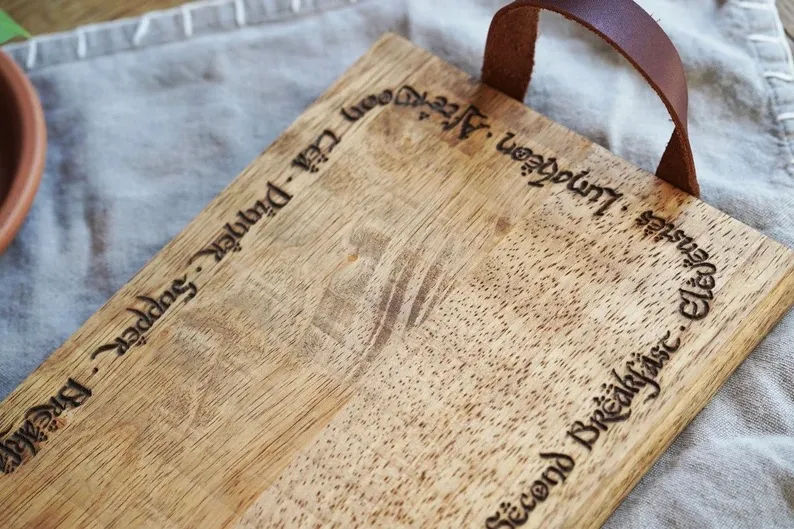 Second Breakfast · Elevensies · Luncheon · Afternoon Tea · Dinner · Supper · Breakf